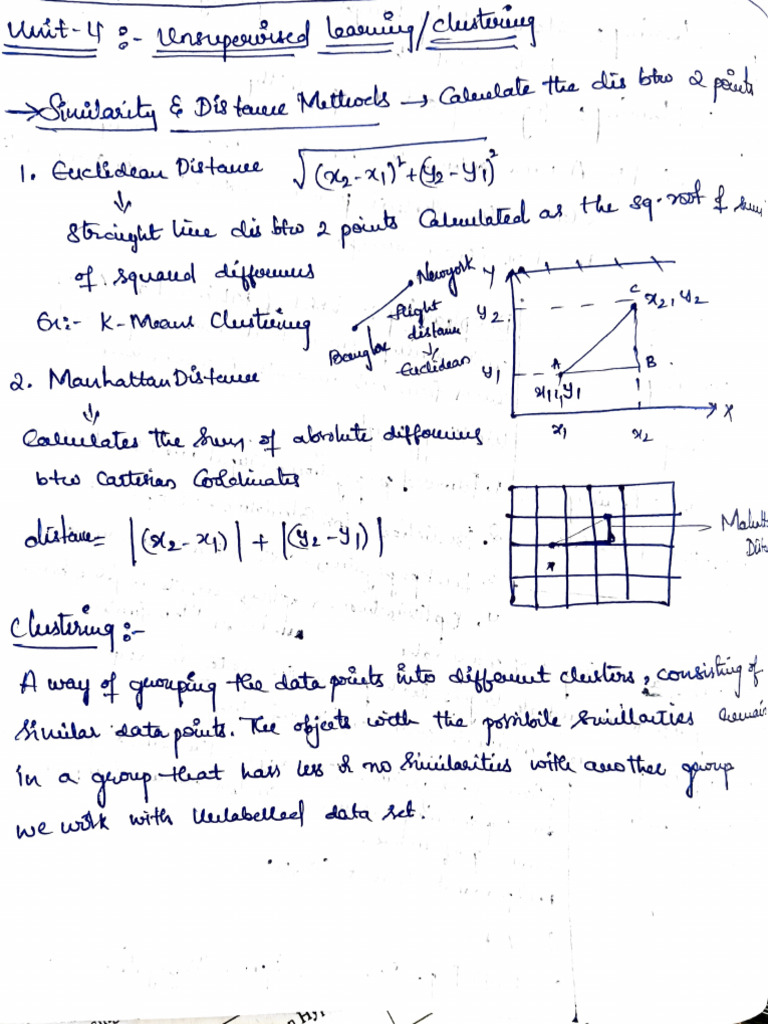 Unit-4 :- Unsupervised Learning/clustering
→ Similarity & Distance Methods → Calculate the dis btw 2 points
1. Euclidean Distance √(x2-x1)²+(y2-y1)²
↓
Straight line dis btw 2 points Calculated as the sq. root of sum
of squared differences
Ex:- K-Means Clustering
Newyork
flight
distance
↓
Euclidean
Banglore
Y
y2
y1
C x2, y2
A
B
x1, y1
x1
x2
X
2. Manhattan Distance
↓
Calculates the Sum of absolute differences
btw Cartesian Coordinates
distance = |(x2-x1)| + |(y2-y1)|
Clustering :-
A way of grouping the data points into different clusters, consisting of
Similar data points. The objects with the possible similarities remain
in a group that has less or no similarities with another group
we work with Unlabelled data set.